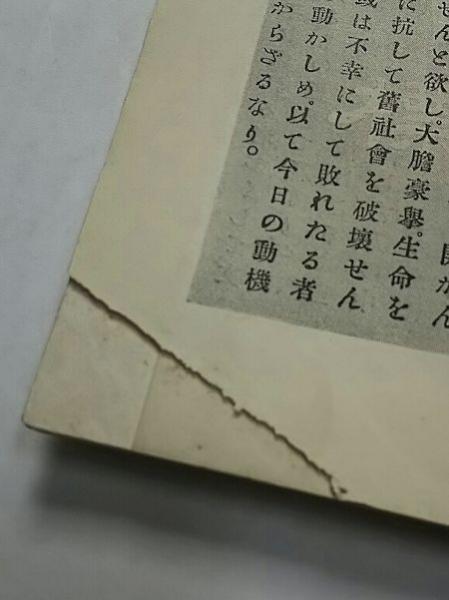 せんと欲し。大膽豪擧。生命を
に抗して舊社會を破壊せん
は不幸にして敗れたる者
動かしめ。以て今日の動機
からざるなり。